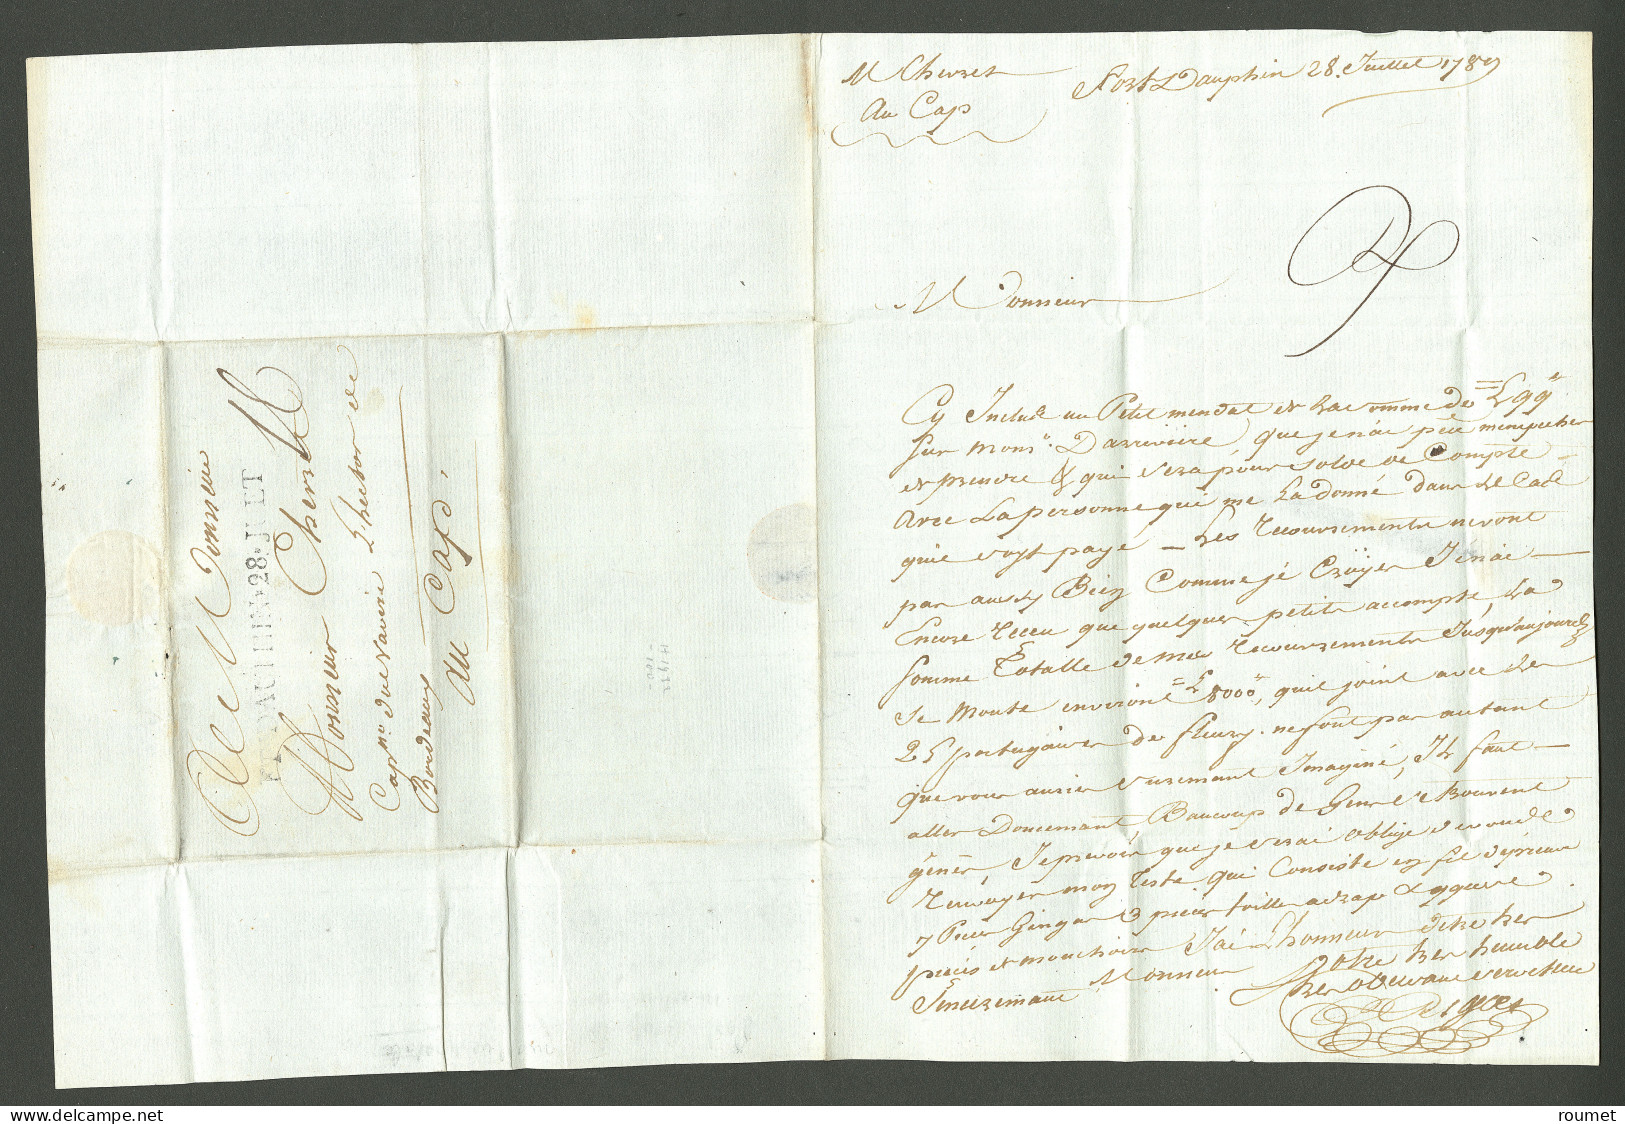 M Cherset
Au Cap
Fort Dauphin 28. Juillet 1789
Monsieur
Cy Includ un Petit mendat et La somme de £ 99
Sur Mons.r Darriviere, que je n'ai peu m'empecher
et prendre & qui sera pour solde de Compte
Avec La personne qui me La donné dans le Cas
qu'il soyt payé — Les Recouvrements ne vont
pas aussy Bien Comme je Croÿer Je n'ai
Encore Receu que quelques petits accompte, La
somme Totalle de mes recouvrements Jusqu'aujourd
se Monte environt £ 8000, qui joint avec les
25 portugaises de fleury. ne font pas autant
que vous aurier Imaginé, Il faut
aller Doucemant, Beaucoup de Gens se trouvent
génér, Je prevoir que je serai Obligé de vous
renvoyer mon reste qui Consiste en fil d'épreuve
7 Pieces Gingas 3 pieces toille a drap &
pieces et mouchoirs J'ai L'honneur d'etre tres
Sincerement Monsieur Votre tres humble
tres Obeissant serviteur
A Monsieur
DAUPHIN 28 JUET
Monsieur Cherset
Cap.ne du Navire L'hector de
Bordeaux
Au Cap.
roumet